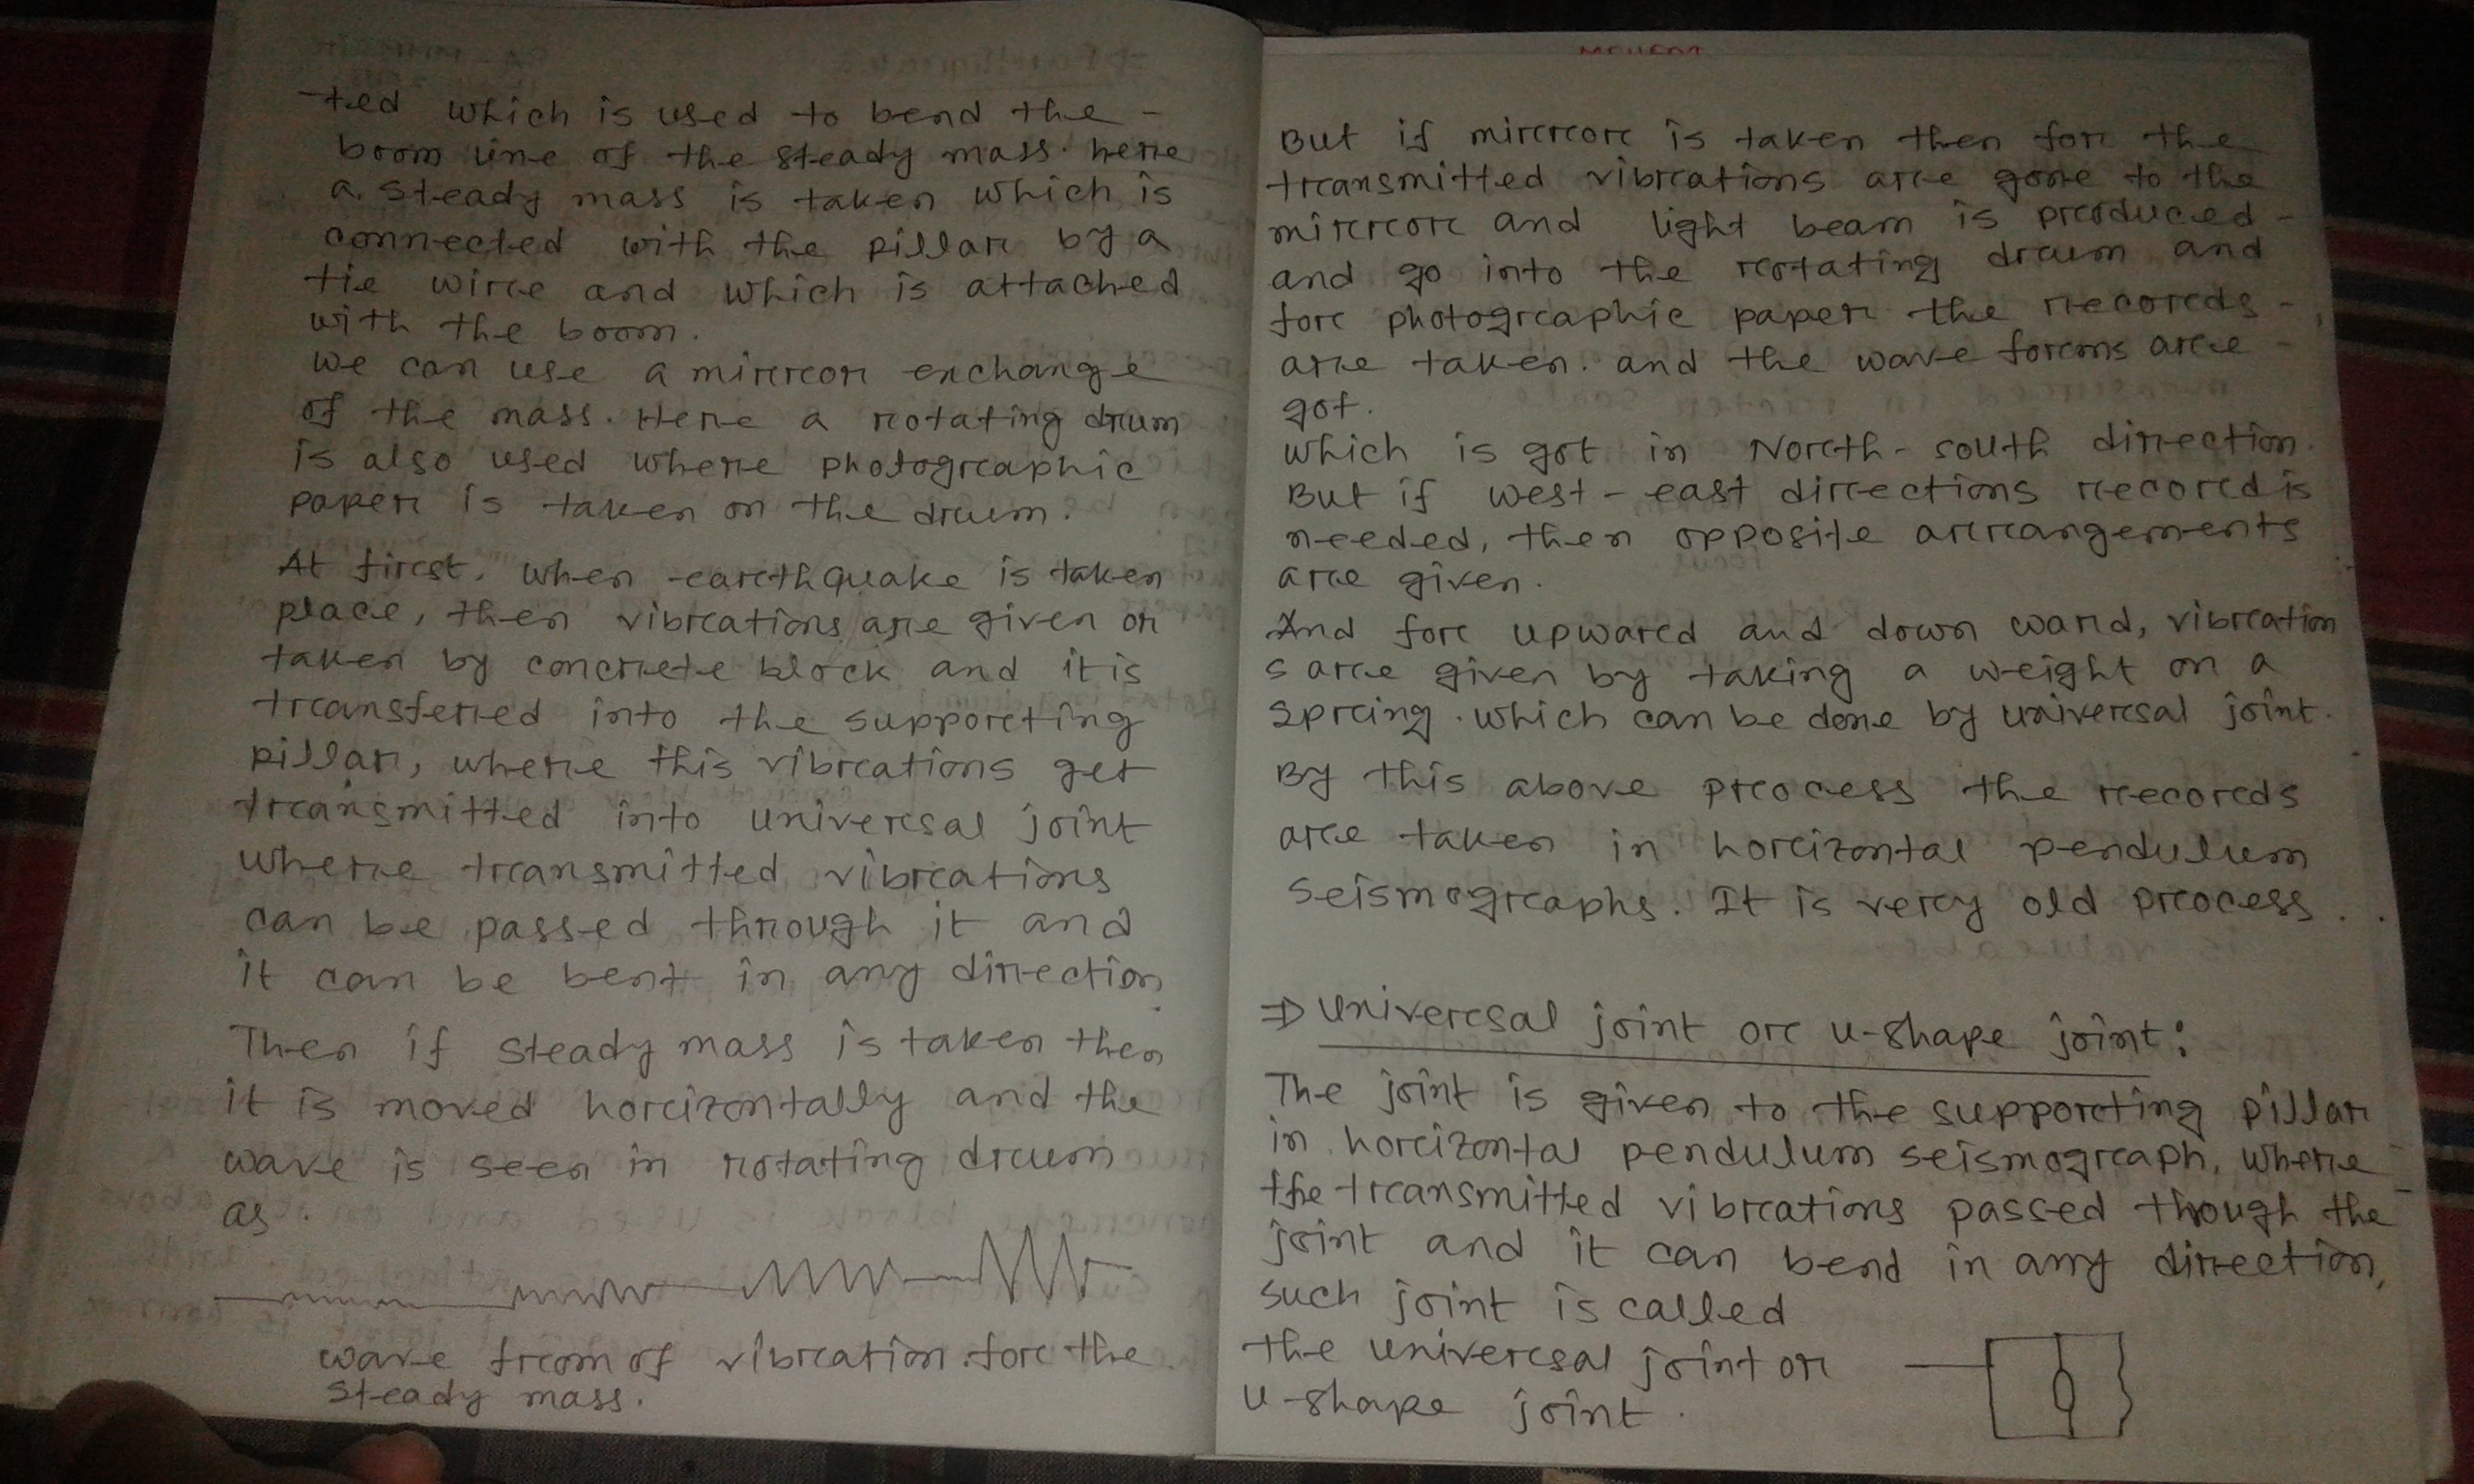 -ted which is used to bend the -
boom line of the steady mass. here
a steady mass is taken which is
connected with the pillar by a
tie wire and which is attached
with the boom.
we can use a mirror exchange
of the mass. Here a rotating drum
is also used where photographic
paper is taken on the drum.
At first, when earthquake is taken
place, then vibrations are given or
taken by concrete block and it is
transferred into the supporting
pillar, where this vibrations get
transmitted into universal joint
where transmitted vibrations
can be passed through it and
it can be bent in any direction.
Then if steady mass is taken then
it is moved horizontally and the
wave is seen in rotating drum
as.
wave from of vibration for the
steady mass.
But if mirror is taken then for the
transmitted vibrations are gone to the
mirror and light beam is produced -
and go into the rotating drum and
for photographic paper the records -
are taken. and the wave forms are -
got.
which is got in North-south direction.
But if west-east directions record is
needed, then opposite arrangements
are given.
And for upward and down ward, vibration
s are given by taking a weight on a
spring. which can be done by universal joint.
By this above process the records
are taken in horizontal pendulum
seismographs. It is very old process.
⇒ Universal joint or u-shape joint:
The joint is given to the supporting pillar
in horizontal pendulum seismograph, where
the transmitted vibrations passed though the
joint and it can bend in any direction,
such joint is called
the universal joint or
u-shape joint.